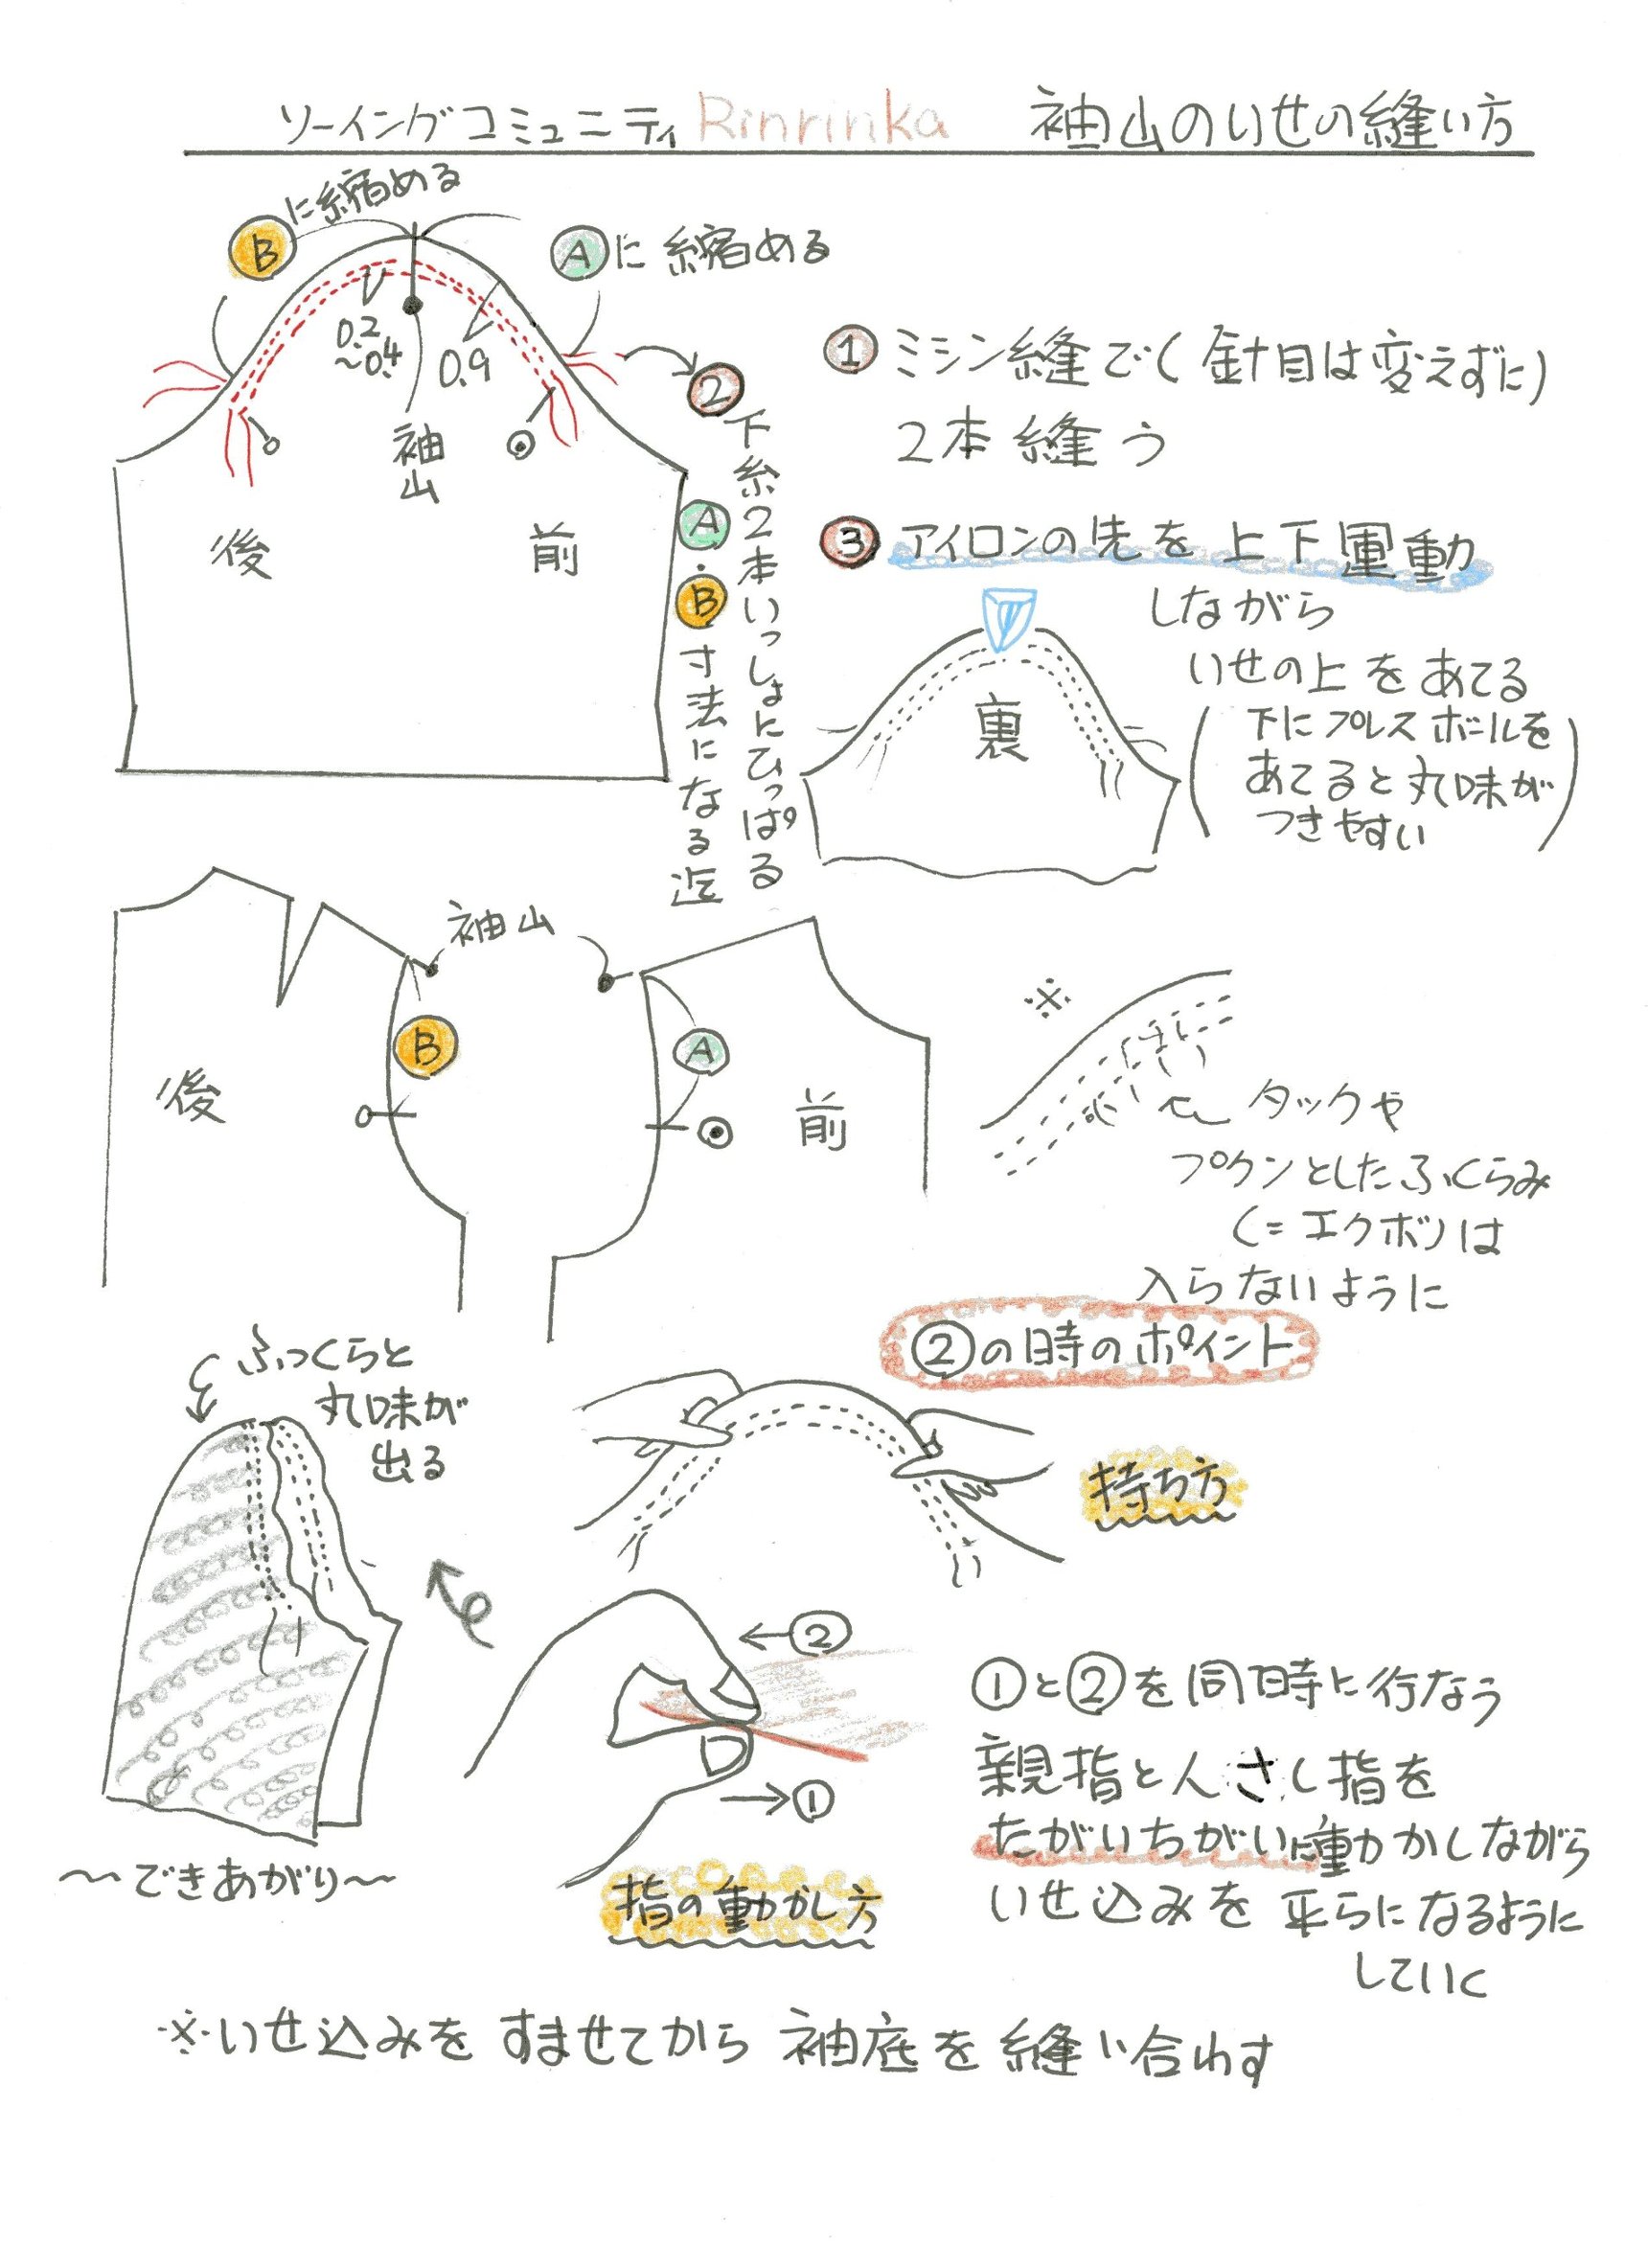 ソーイングコミュニティ Rinrinka 袖山のいせの縫い方
Bに縮める
Aに縮める
0.2
〜0.4
0.9
袖山
後
前
① ミシン縫で(針目は変えずに)
2本縫う
② 下糸2本いっしょにひっぱる
A・B寸法になる迄
③ アイロンの先を上下運動
しながら
いせの上をあてる
(下にプレスボールを
あてると丸味が
つきやすい)
裏
袖山
B
A
後
前
※
タックや
プクンとしたふくらみ
(=エクボ)は
入らないように
②の時のポイント
ふっくらと
丸味が
出る
持ち方
②
①
指の動かし方
①と②を同時に行なう
親指と人さし指を
たがいちがいに動かしながら
いせ込みを平らになるように
していく
〜できあがり〜
※いせ込みをすませてから袖底を縫い合わす